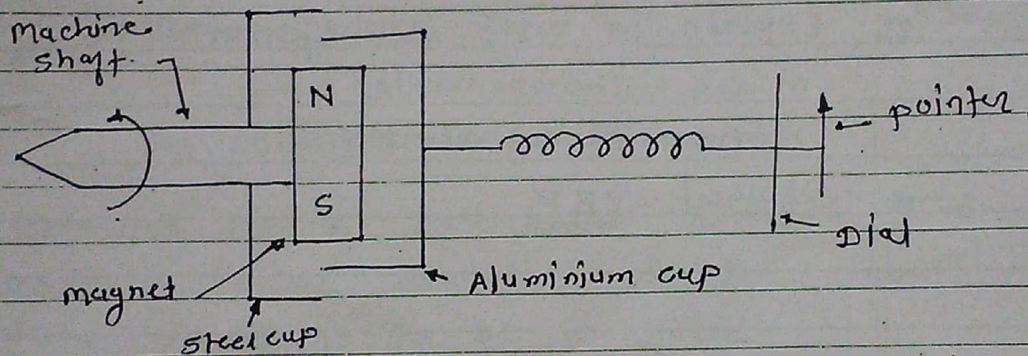 Machine
shaft.
N
S
pointer
Dial
magnet
Aluminium cup
steel cup